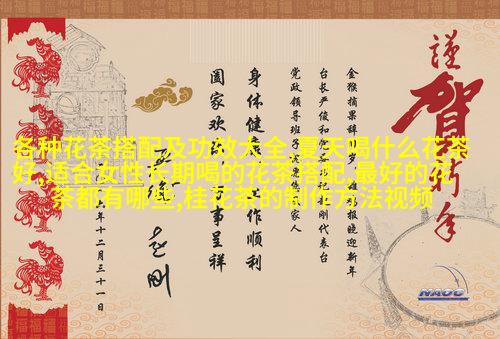 各种花茶搭配及功效大全,夏天喝什么花茶
好,适合女性长期喝的花茶搭配,最好的花
茶都有哪些,桂花茶的制作方法视频
謹賀新年
金猴摘果辞岁 报晓迎新年
台长严俊和 刚代表台
党政领导班子 家人
身体健康 工作顺利
阖家欢 事呈祥
年十二月三十一日
NAOC